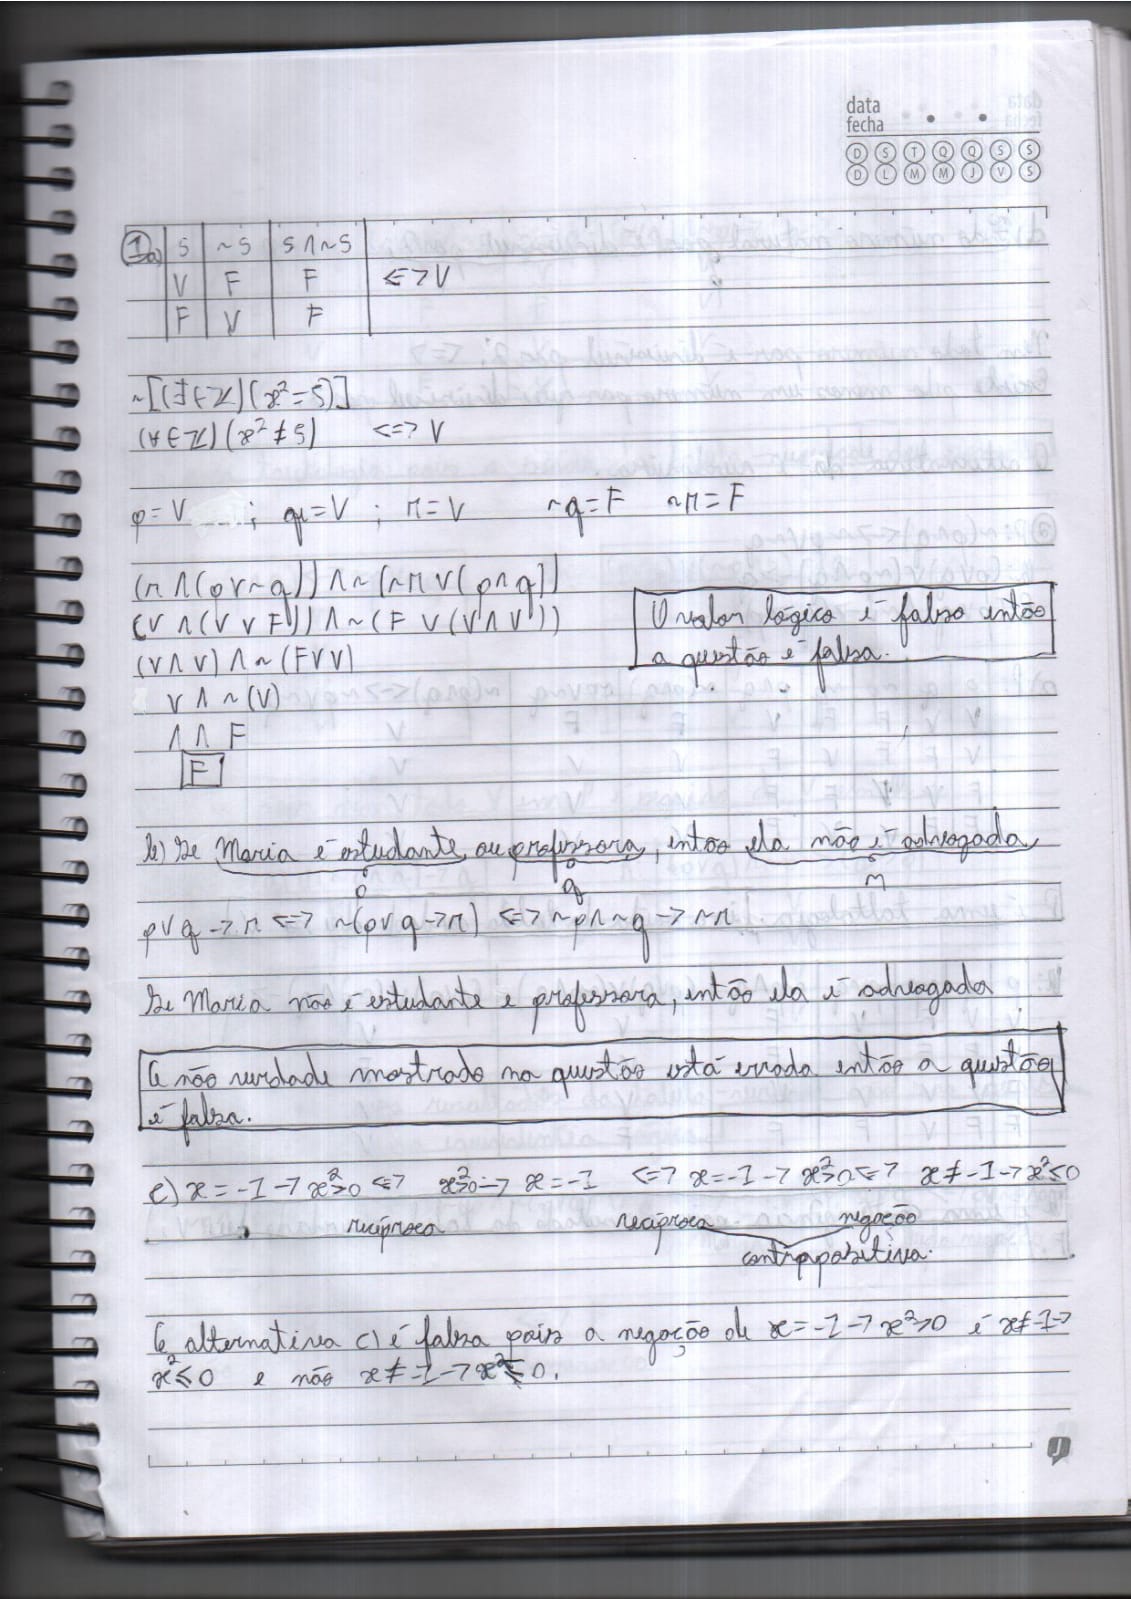 data
fecha
D S T Q Q S S
D L M M J V S
1 a) S ~S S ∧ ~S
V F F <=> V
F V F
~[(∃ ∈ Z)(x² = 5)]
(∀ ∈ Z)(x² ≠ 5) <=> V
p = V ; q = V ; r = V ~q = F ~r = F
(r ∧ (p ∨ ~q)) ∧ ~(~r ∨ (p ∧ q))
(V ∧ (V ∨ F)) ∧ ~(F ∨ (V ∧ V))
O valor lógico é falso então
a questão é falsa.
(V ∧ V) ∧ ~(F ∨ V)
V ∧ ~(V)
∧ ∧ F
F
b) Se Maria é estudante ou professora, então ela não é advogada,
p q r
p ∨ q -> r <=> ~(p ∨ q -> r) <=> ~p ∧ ~q -> ~r
Se Maria não é estudante e professora, então ela é advogada
A não verdade mostrado na questão está errada então a questão
é falsa.
c) x = -1 -> x² > 0 <=> x² > 0 -> x = -1 <=> x = -1 -> x² > 0 <=> x ≠ -1 -> x² ≤ 0
recíproca recíproca negação
contrapositiva.
A alternativa c) é falsa pois a negação de x = -1 -> x² > 0 é x ≠ -1 ->
x² ≤ 0 e não x ≠ -1 -> x² ≤ 0.